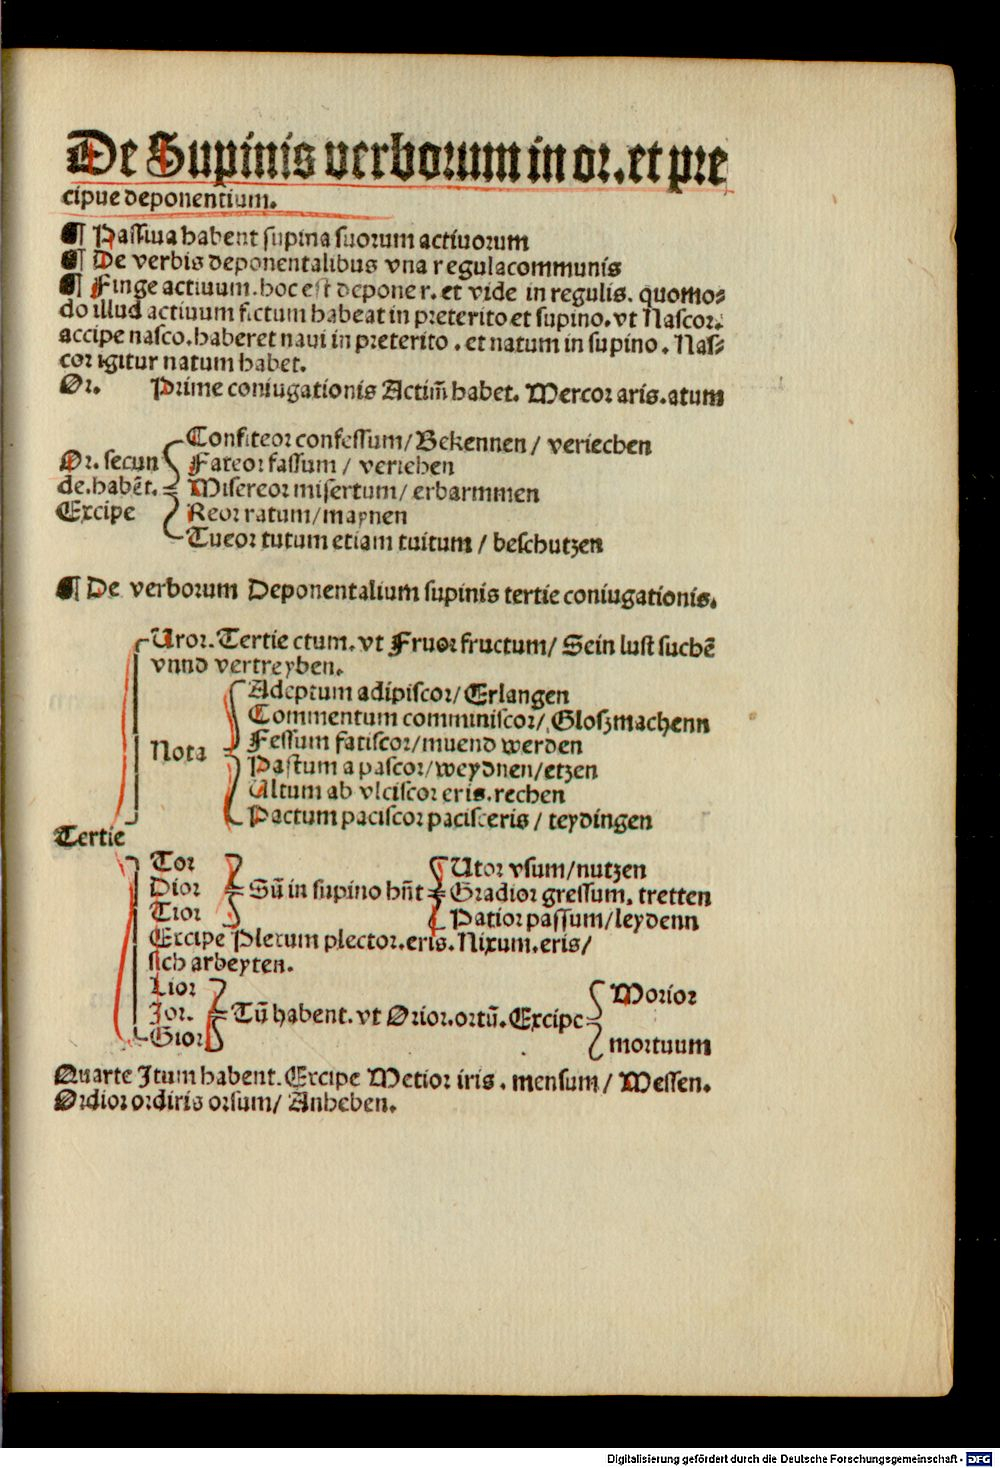 De Supinis verborum in or. et pre
cipue deponentium.
¶ Passiua habent supina suorum actiuorum
¶ De verbis deponentalibus vna regula communis
¶ Finge actiuum. hoc est depone r. et vide in regulis. quomo⸗
do illud actiuum fictum habeat in preterito et supino. vt Nascor.
accipe nasco. haberet naui in preterito. et natum in supino. Nas⸗
cor igitur natum habet.
Or. Prime coniugationis Actim̄ habet. Mercor aris. atum
Confiteor confessum/ Bekennen/ veriechen
Or. secun Fateor fassum/ veriehen
de. habēt. Misereor misertum/ erbarmmen
Excipe Reor ratum/ maynen
Tueor tutum etiam tuitum/ beschutzen
¶ De verborum Deponentalium supinis tertie coniugationis.
Uror. Tertie ctum. vt Fruor fructum/ Sein lust suchē
vnnd vertreyben.
Adeptum adipiscor/ Erlangen
Commentum comminiscor/ Gloszmachenn
Nota Fessum fatiscor/ muend werden
Pastum a pascor/ weydnen/ etzen
Ultum ab vlciscor eris. rechen
Pactum paciscor pacisceris/ teydingen
Tertie
Tor Utor vsum/ nutzen
Dior Sū in supino hn̄t Gradior gressum. tretten
Tior Patior passum/ leydenn
Excipe Plexum plector. eris. Nixum. eris/
sich arbeyten.
Lior Morior
Jor. Tū habent. vt Orior. ortū. Excipe
Gior mortuum
Quarte Jtum habent. Excipe Metior iris. mensum/ Messen.
Ordior ordiris orsum/ Anheben.
Digitalisierung gefördert durch die Deutsche Forschungsgemeinschaft - DFG